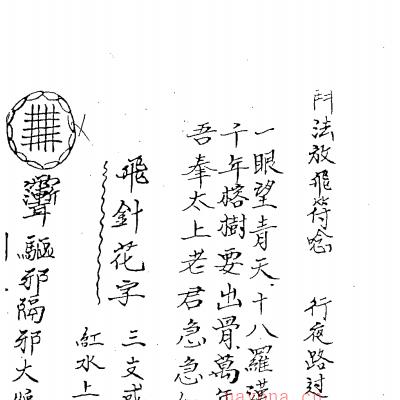 鬥法放飛符唸 行夜路过
一眼望青天十八羅漢
千年榕樹要出骨萬年
吾奉太上老君急急
飛針花字 三支或
紅水上
驅邪隔邪大